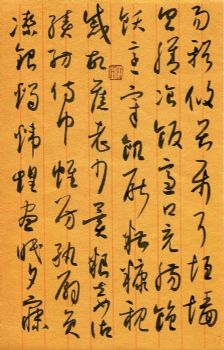 易輶攸畏屬耳垣墻
具膳飡飯適口充腸飽
飫烹宰飢厭糟糠親
戚故舊老少異糧妾御
績紡侍巾帷房紈扇員
潔銀燭煒煌晝眠夕寐